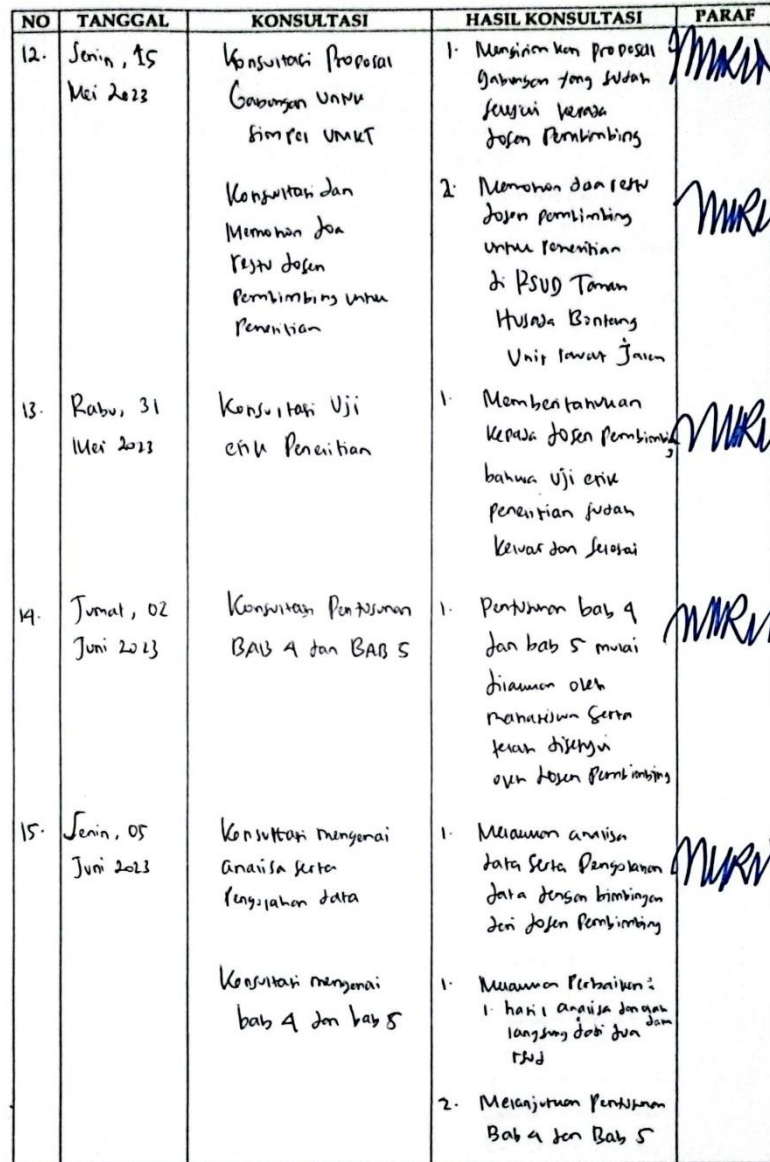 NO TANGGAL KONSULTASI HASIL KONSULTASI PARAF
12. Senin, 15
Mei 2023
Konsultasi Proposal
Gabungan untuk
Simpel UMKT
1. Mengirimkan proposal
gabungan yang sudah
selesai kepada
dosen Pembimbing
Konsultasi dan
Memohon doa
restu dosen
Pembimbing untuk
Penelitian
2. Memohon doa restu
dosen pembimbing
untuk penelitian
di RSUD Taman
Husada Bontang
Unit rawat Jalan
13. Rabu, 31
Mei 2023
Konsultasi Uji
etik Penelitian
1. Memberitahukan
kepada dosen Pembimbing
bahwa uji etik
penelitian sudah
keluar dan selesai
14. Jumat, 02
Juni 2023
Konsultasi Penyusunan
BAB 4 dan BAB 5
1. Penyusunan bab 4
dan bab 5 mulai
dilakukan oleh
mahasiswa serta
telah disetujui
oleh dosen Pembimbing
15. Senin, 05
Juni 2023
Konsultasi mengenai
analisa serta
Pengolahan data
1. Melakukan analisa
data serta Pengolahan
data dengan bimbingan
dari dosen Pembimbing
Konsultasi mengenai
bab 4 dan bab 5
1. Melakukan Perbaikan:
1. hasil analisa jangan
langsung dari dua
rsud
2. Melanjutkan Penyusunan
Bab 4 dan Bab 5